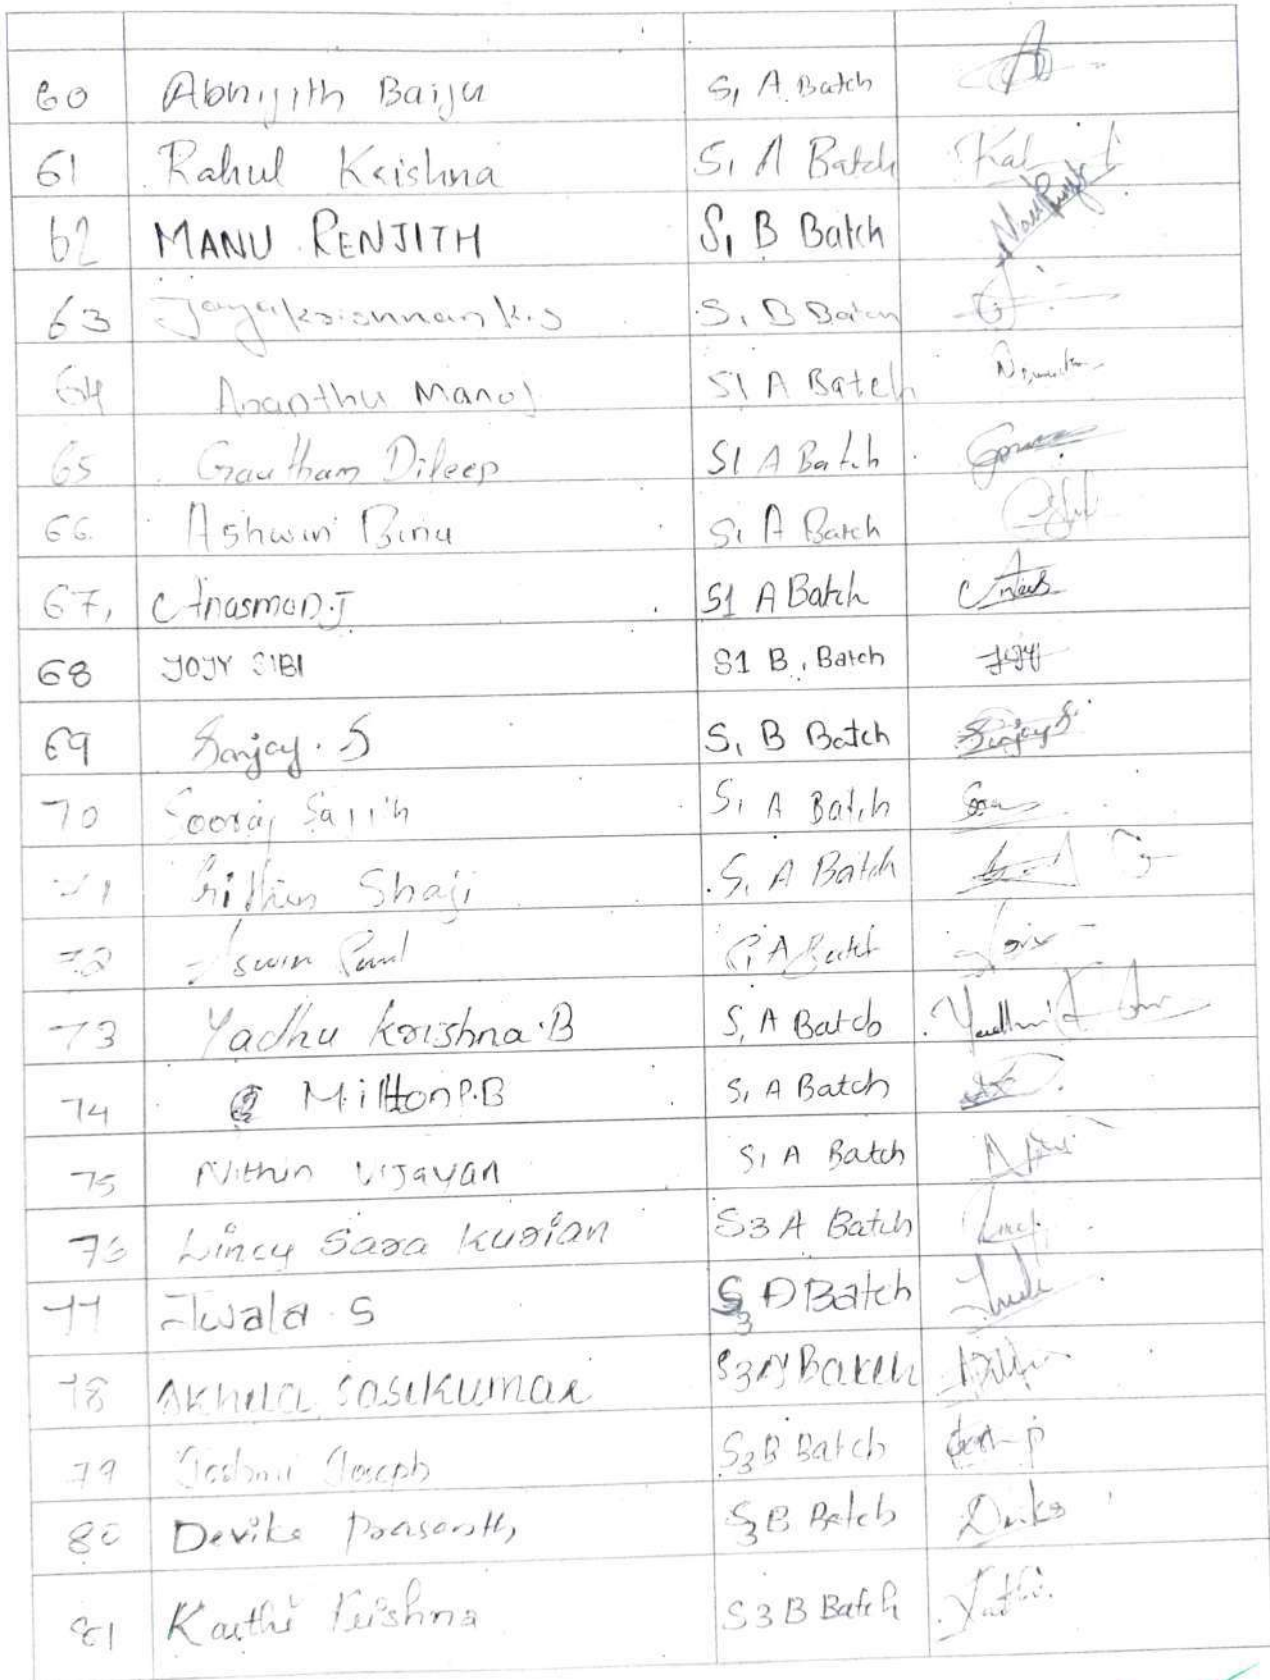 60 Abhijith Baiju S1 A Batch
61 Rahul Krishna S1 A Batch
62 MANU RENJITH S1 B Batch
63 Jayakrishnan K.S S1 B Batch
64 Ananthu Manoj S1 A Batch
65 Gautham Dileep S1 A Batch
66 Ashwin Binu S1 A Batch
67, Anasmon.J S1 A Batch
68 JOJY SIBI S1 B, Batch JOJY
69 Sanjay. S S1 B Batch Sanjay S
70 Sooraj S1 A Batch
71 Shaji S1 A Batch
72 Aswin Paul S1 A Batch
73 Yadhu Krishna.B S1 A Batch
74 Milton P.B S1 A Batch
75 Nithin Vijayan S1 A Batch
76 Lincy Sara Kurian S3 A Batch Lincy
77 Jwala S S3 A Batch
78 Akhila Sasikumar S3 A Batch
79 Joseph S3 B Batch
80 Devika Prasanth S3 B Batch
81 Krishna S3 B Batch